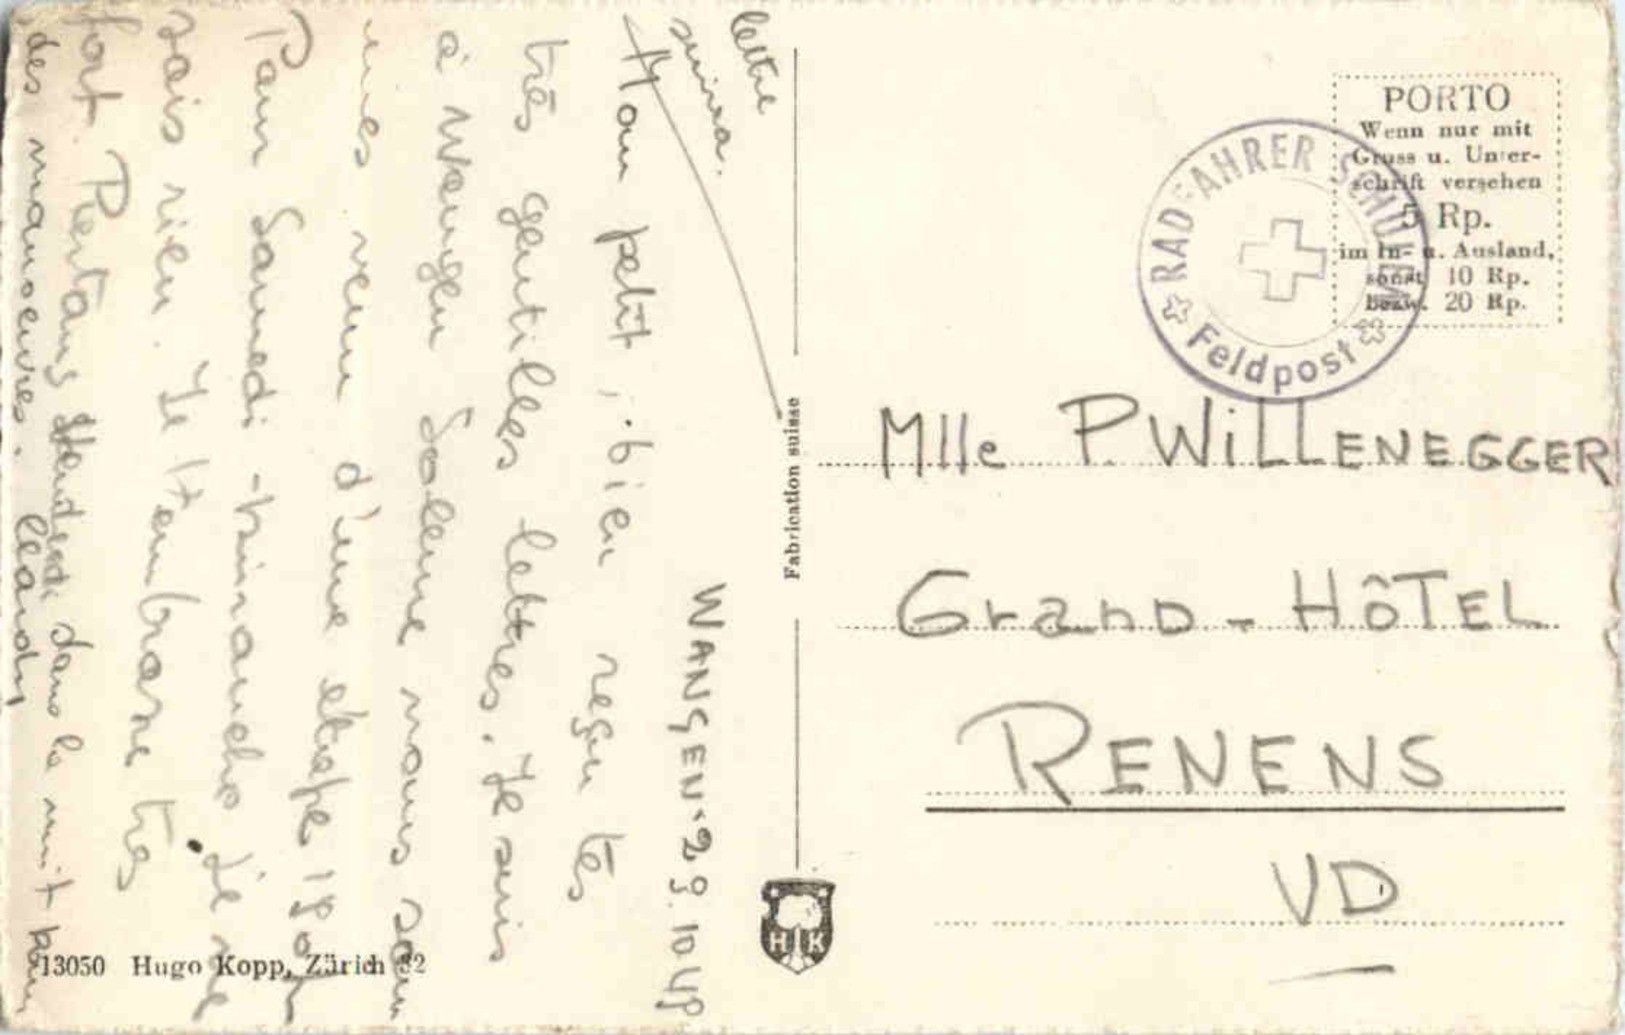 WANGEN. 29.10 4P
Mon petit, bien reçu tes
très gentilles lettres. Je suis
à Wangen Soleure nous som
mes venu d'une étape 180 K
Pour Samedi - Dimanche je ne
sais rien. Je t'embrasse très
fort. Partons Vendredi dans la nuit pour
des manoeuvres. Leandry
lettre
suivra.
Fabrication suisse
HK
13050 Hugo Kopp, Zürich 32
PORTO
Wenn nur mit
Gruss u. Unter-
schrift versehen
5 Rp.
im In- u. Ausland,
sonst 10 Rp.
bezw. 20 Rp.
RADFAHRER SCHULE
Feldpost
Mlle P. WILLENEGGER
Grand - HôTEL
RENENS
VD